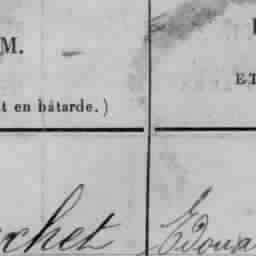 M.
ET
t en bâtarde.)
chet Edoua